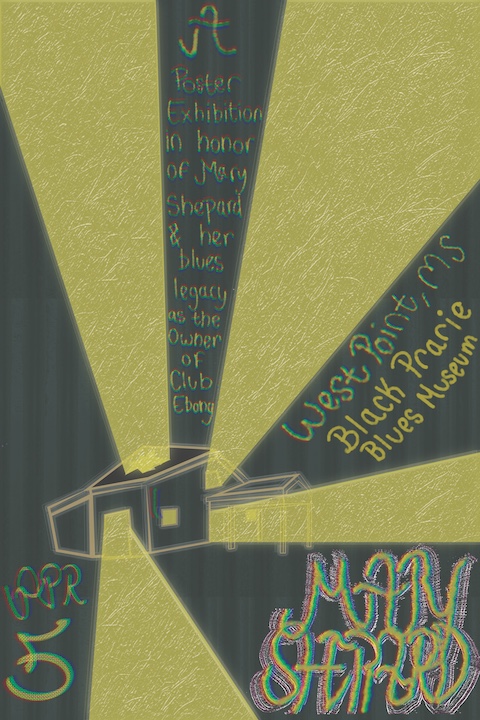 A
Poster
Exhibition
in honor
of Mary
Shepard
& her
blues
legacy
as the
Owner
of
Club
Ebony
West Point, MS
Black Prarie
Blues Museum
APR
5
MARY
SHEPARD